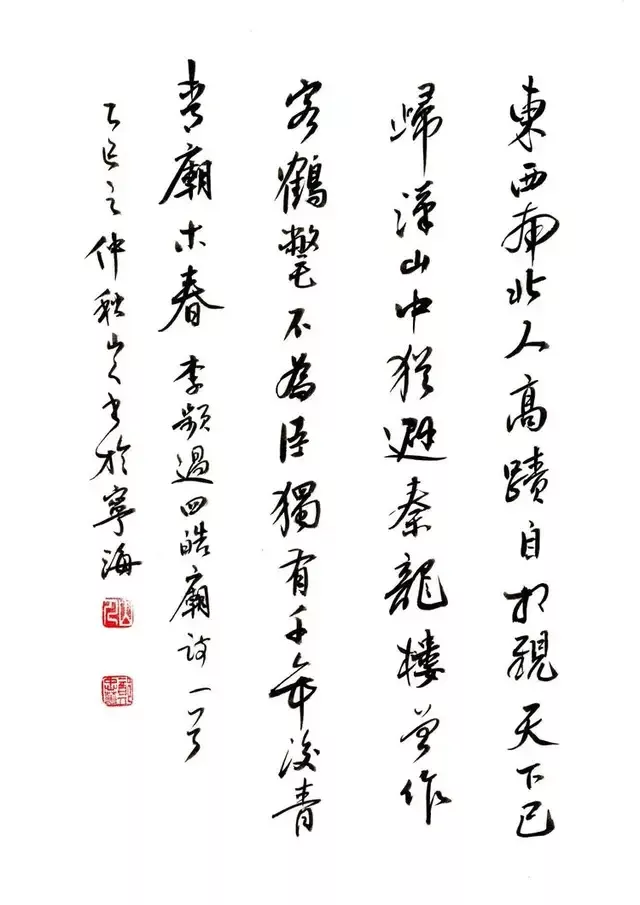 東西南北人高蹟自相親天下已
歸漢山中猶避秦龍樓曾作
客鶴氅不為臣獨有千年後青
青廟木春 李頻過四皓廟詩一首
乙巳之仲秋山人書於寧海